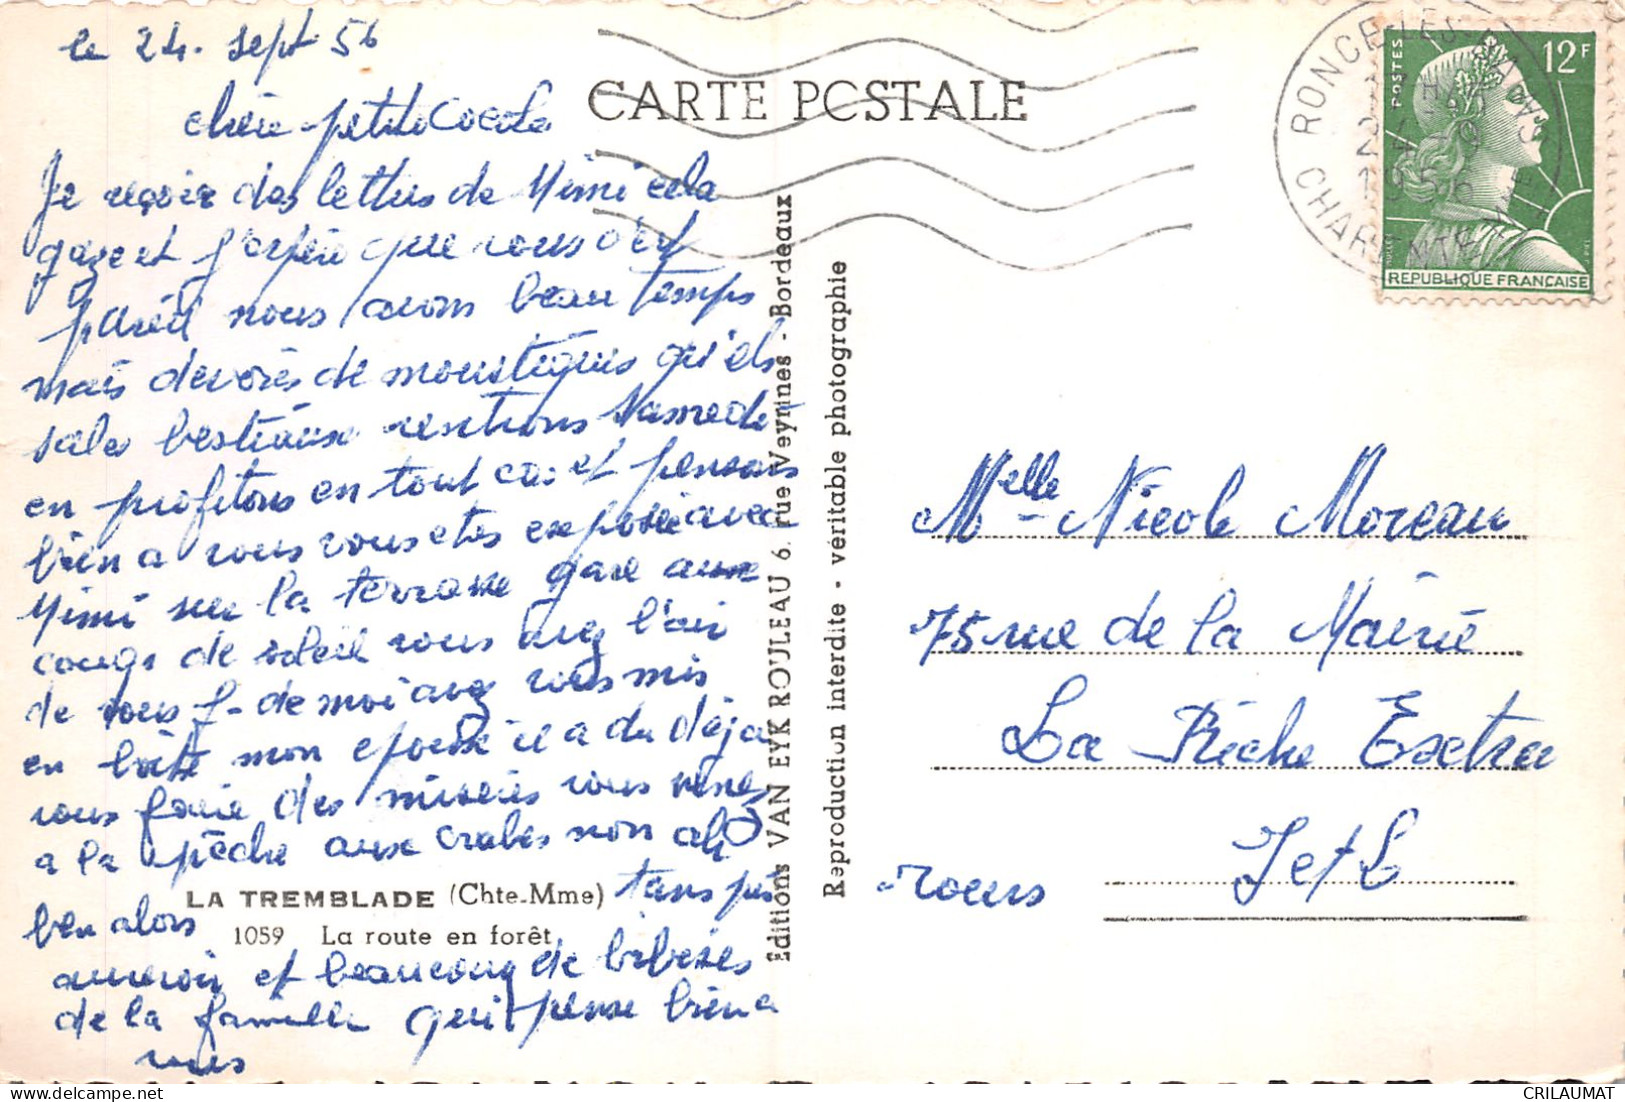 le 24. sept. 56
chère petite Cocola
Je reçoir des lettres de Mimi cela
gaze et j'espère que vous c'est
pareil nous avons beau temps
mais devorés de moustiques qu'els
sales bestiause rentrons samedi
en profitons en tout cas et pensons
bien a vous vous etes exposée avec
Mimi sur la terrasse gare aux
coups de soleil vous avez l'air
de vous f- de moi avez vous mis
en boite mon epouse il a du déja
vous faire des misères vous venez
a la pêche aux crabes non ah
ben alors tans pis
aurevoir et beaucoup de bibises
de la famille qui pense bien a
vous
LA TREMBLADE (Chte-Mme)
1059 La route en forêt
CARTE POSTALE
Editions VAN EYK ROULEAU 6, rue Veyrines - Bordeaux
Reproduction interdite - veritable photographie
RONCE-LES-BAINS
24 9
1956
CHARENTE Mme
POSTES
12F
REPUBLIQUE FRANÇAISE
Melle Nicole Moreau
75 rue de la Mairie
La Riche Extra
I et L
Tours
CRILAUMAT